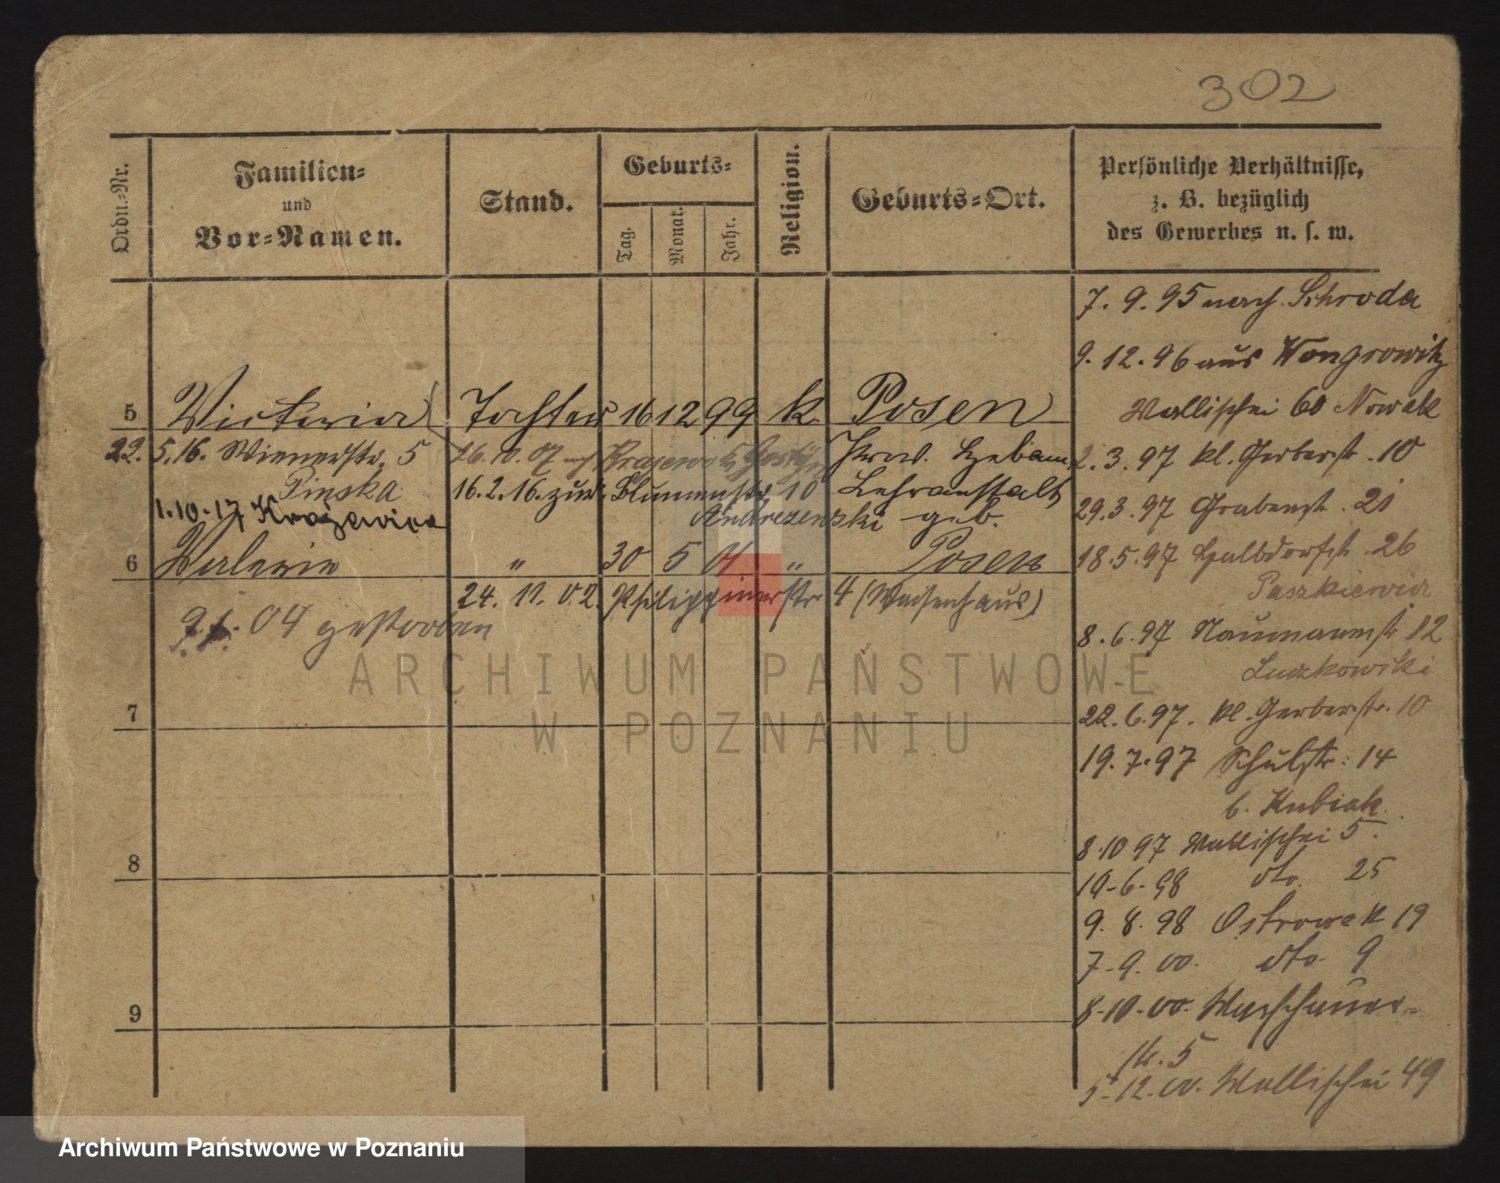 302
Ordn.-Nr.
Familien-
und
Vor-Namen.
Stand.
Geburts-
Tag.
Monat.
Jahr.
Religion.
Geburts-Ort.
Persönliche Verhältnisse,
z. B. bezüglich
des Gewerbes u. s. w.
7. 9. 95 nach Schroda
9. 12. 96 aus Wongrowitz
Wallischei 60 Nowak
5 Victoria Tochter 16 12 99 k Posen
2. 3. 97 kl. Gerberstr. 10
22. 5. 16. Wienerstr. 5
Pinska
16. 2. 16. zur Blumenstr. 10
Prov. Hebam
Lehranstalt
29. 3. 97 Grabenstr. 21
1.10.17 Krażewica
Andrezewski geb.
6 Valerie " 30 5 01 " Posen
18. 5. 97 Halbdorfstr. 26
Paszkiewicz
24. 11. 02. Philippinerstr. 4 (Waisenhaus)
04 gestorben
8. 6. 97 Naumannstr. 12
Luczkowski
7
22. 6. 97. kl. Gerberstr. 10
19. 7. 97 Schulstr. 14
b. Kubiak
8
8. 10 97 Wallischei 5.
19. 6. 98 dto. 25
9. 8. 98 Ostrowek 19
7. 9. 00. dto. 9
9
8. 10. 00. Warschauer-
str. 5
5. 12. 00. Wallischei 49
ARCHIWUM PAŃSTWOWE
W POZNANIU
Archiwum Państwowe w Poznaniu